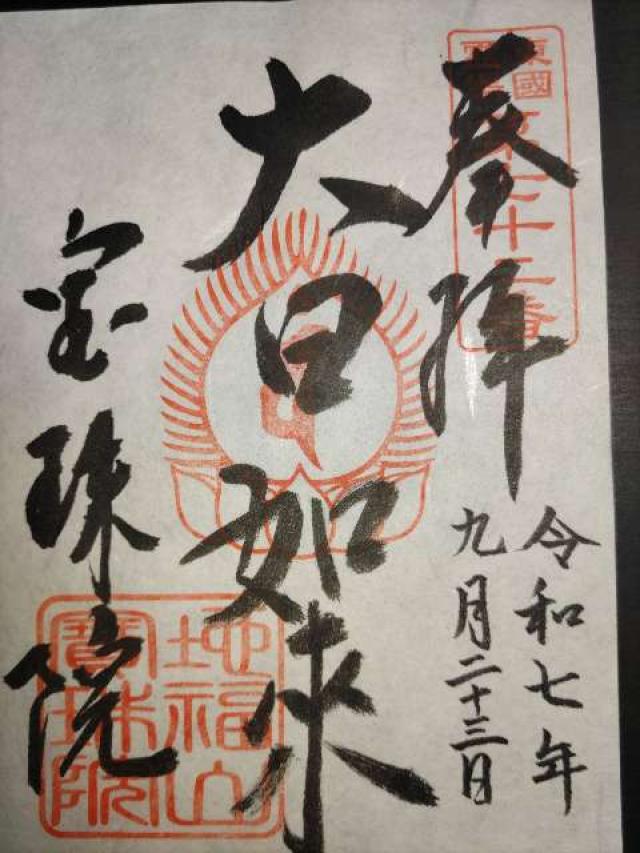 奉拝
令和七年
九月二十三日
大日如来
宝珠院
東國
第七十二番
地福山
寳珠院